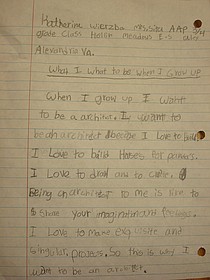 Katherine Wierzba Mrs. AAP 3rd
grade Class Hollin Meadows E-S
Alexandria VA.
What I what to be when I Grow UP
When I grow up I want
to be a architect. I want to
be an architect because I love to build
I love to build Houses for
I love to draw and to
Being an architect to me is like to
Share your imagination
I love to make exquisite and
singular So this is why I
want to be an architect.